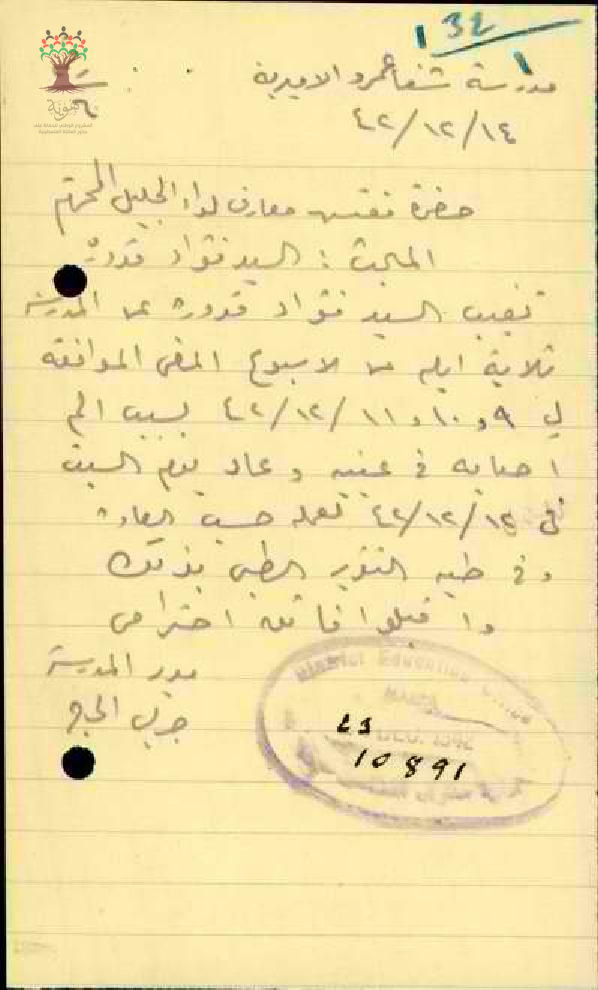 32
مدرسة شفاعمرو الاميرية
٤٢/١٢/١٤
حضرة مفتش معارف لواء الجليل المحترم
المبحث : السيد فؤاد قدورة
تغيب السيد فؤاد قدورة عن المدرسة
ثلاثة ايام من الاسبوع المنفى الموافقة
ل ٩ و ١٠ و ١١ /١٢/ ٤٢ بسبب الم
اصابه في عينيه وعاد يوم السبت
في ١٢/١٢/ ٤٢ لعمله حسب العادة
وفي طيه التقرير الطبي بذلك
واقبلوا فائق احترامي
مدير المدرسة
District Education Office
DEC. 1942
LS
10891